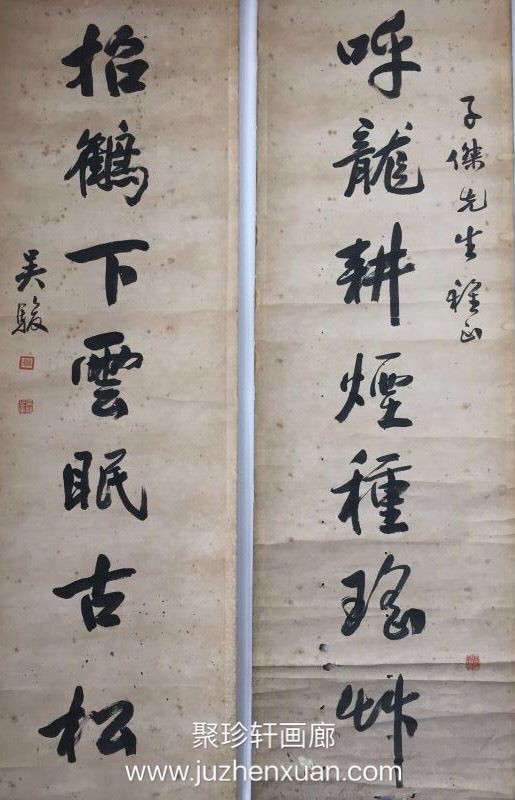 子傑先生雅正
呼龍耕煙種瑤艸
招鶴下雲眠古松
吴駿
聚珍轩画廊
www.juzhenxuan.com